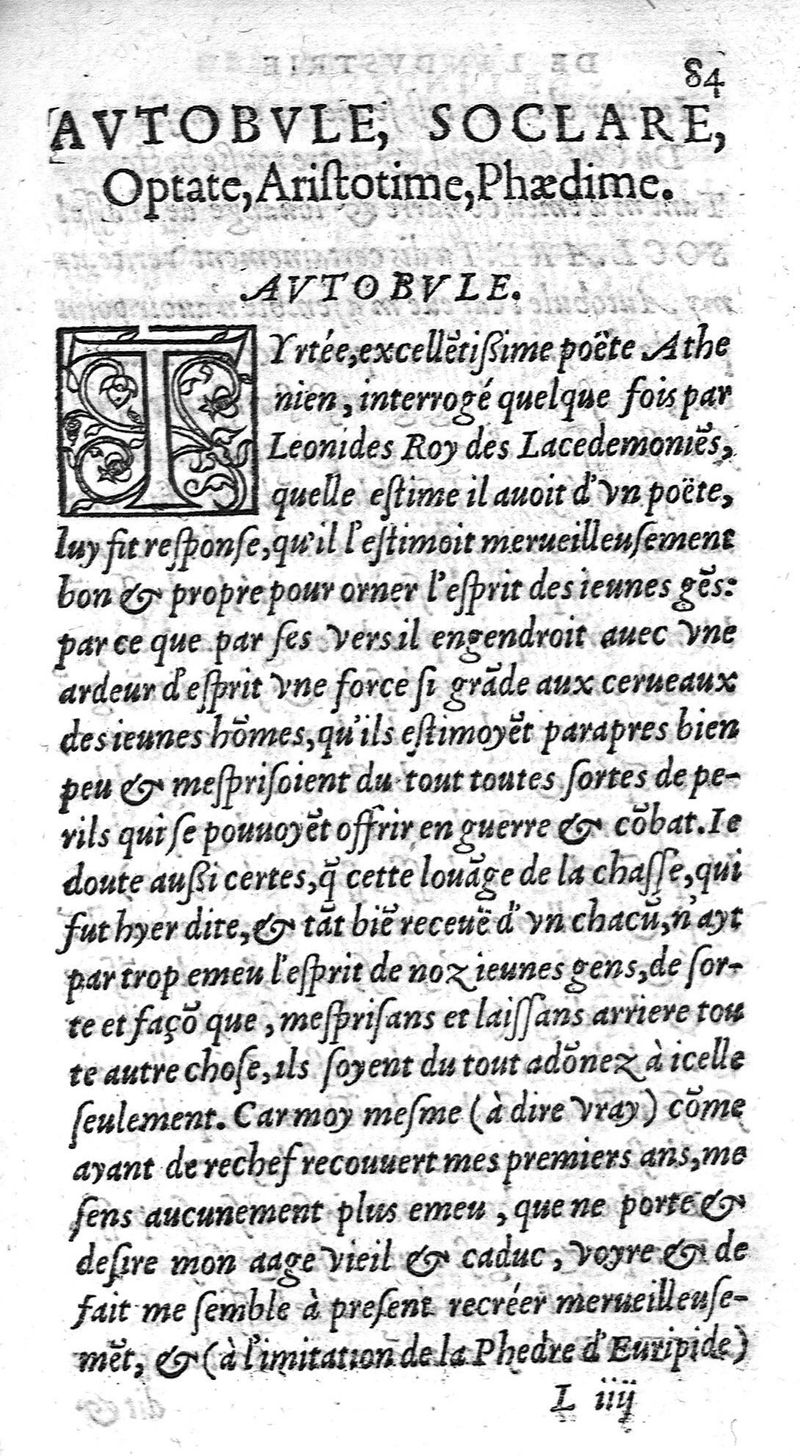 84
AVTOBVLE, SOCLARE,
Optate, Aristotime, Phædime.
AVTOBVLE.
TYrtée, excellẽtißime poëte Athe
nien, interrogé quelque fois par
Leonides Roy des Lacedemoniẽs,
quelle eſtime il auoit d'vn poëte,
luy fit reſponſe, qu'il l'eſtimoit merueilleuſement
bon & propre pour orner l'eſprit des ieunes gẽs:
par ce que par ſes vers il engendroit auec vne
ardeur d'eſprit vne force ſi grãde aux cerueaux
des ieunes hõmes, qu'ils eſtimoyẽt parapres bien
peu & meſpriſoient du tout toutes ſortes de pe-
rils qui ſe pouuoyẽt offrir en guerre & cõbat. Ie
doute außi certes, q̃ cette louãge de la chaſſe, qui
fut hyer dite, & tãt biẽ receuë d'vn chacũ, n'ayt
par trop emeu l'eſprit de noz ieunes gens, de ſor-
te et façõ que, meſpriſans et laiſſans arriere tou
te autre choſe, ils ſoyent du tout adõnez à icelle
ſeulement. Car moy meſme (à dire vray) cõme
ayant de rechef recouuert mes premiers ans, me
ſens aucunement plus emeu, que ne porte &
deſire mon aage vieil & caduc, voyre & de
fait me ſemble à preſent recréer merueilleuſe-
mẽt, & (à l'imitation de la Phedre d'Euripide)
L iiij